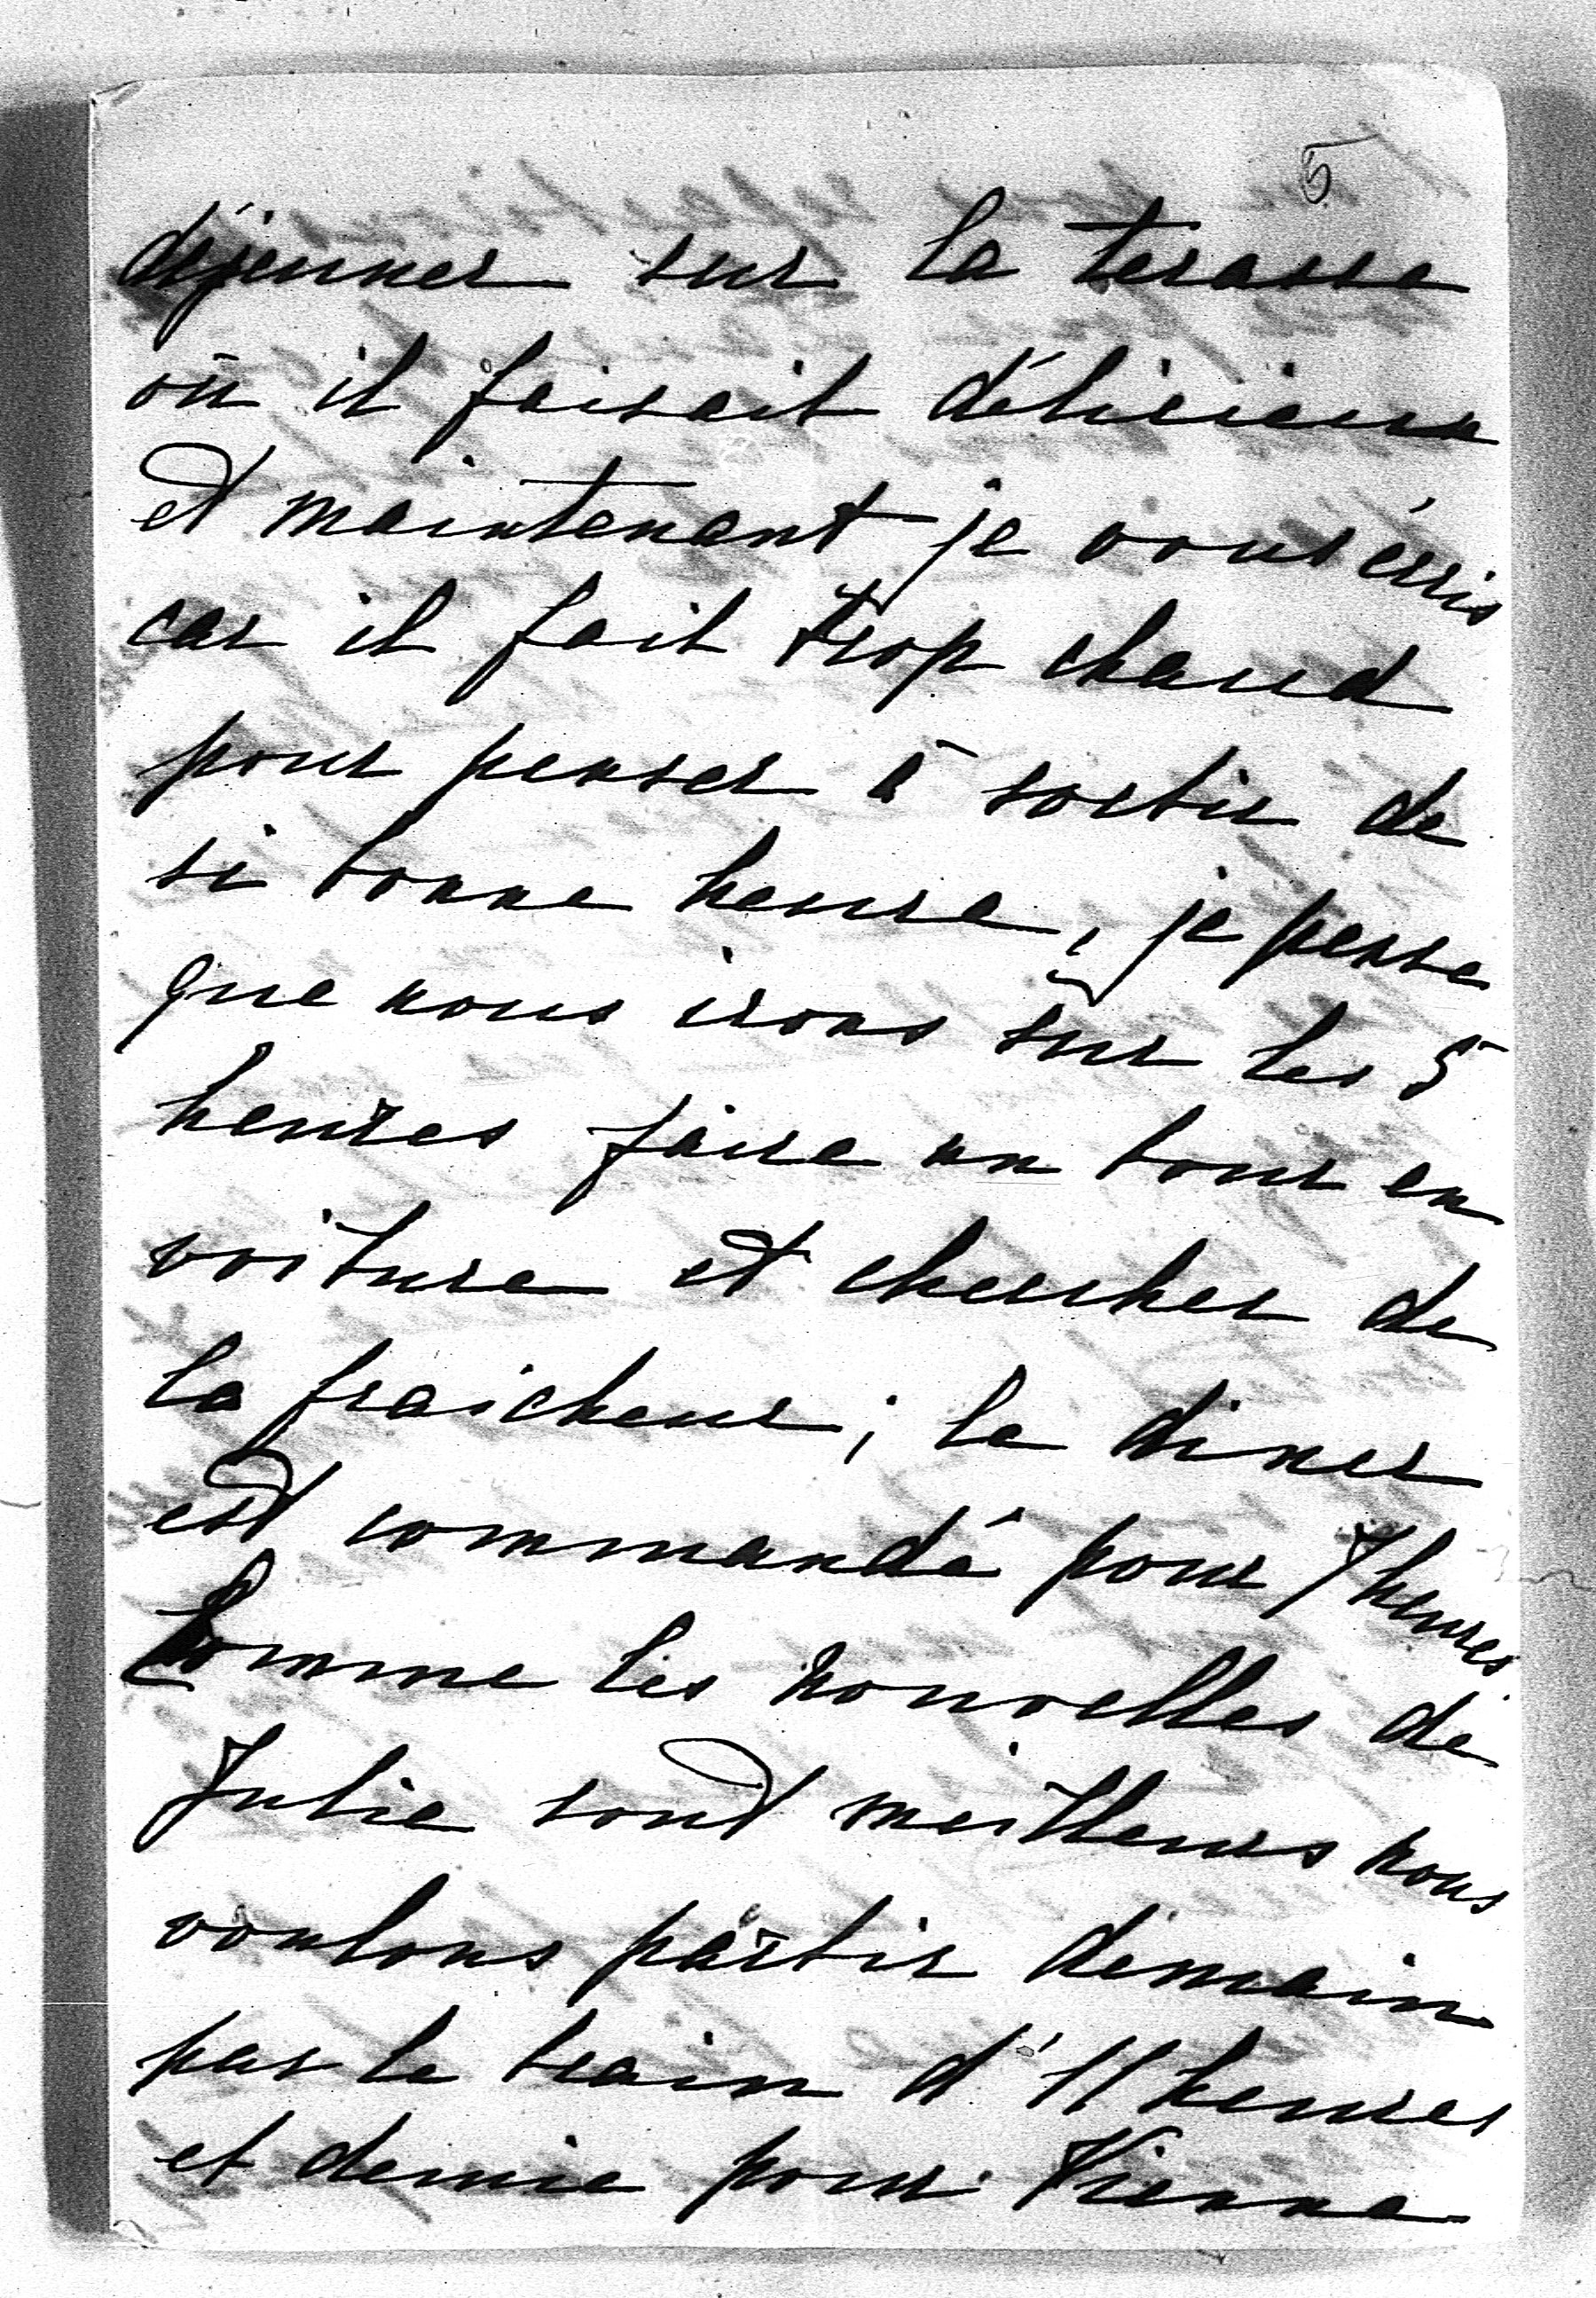 5
déjeuner sur la terasse
où il faisait délicieux
et maintenant je vous écris
car il fait trop chaud
pour penser à sortir de
si bonne heure, je pense
que nous irons sur les 5
heures faire un tour en
voiture et chercher de
la fraicheur; le diner
est commandé pour 7 heures
Comme les nouvelles de
Julie sont meilleurs nous
voulons partir demain
par le train d'11 heures
et demie pour Vienne